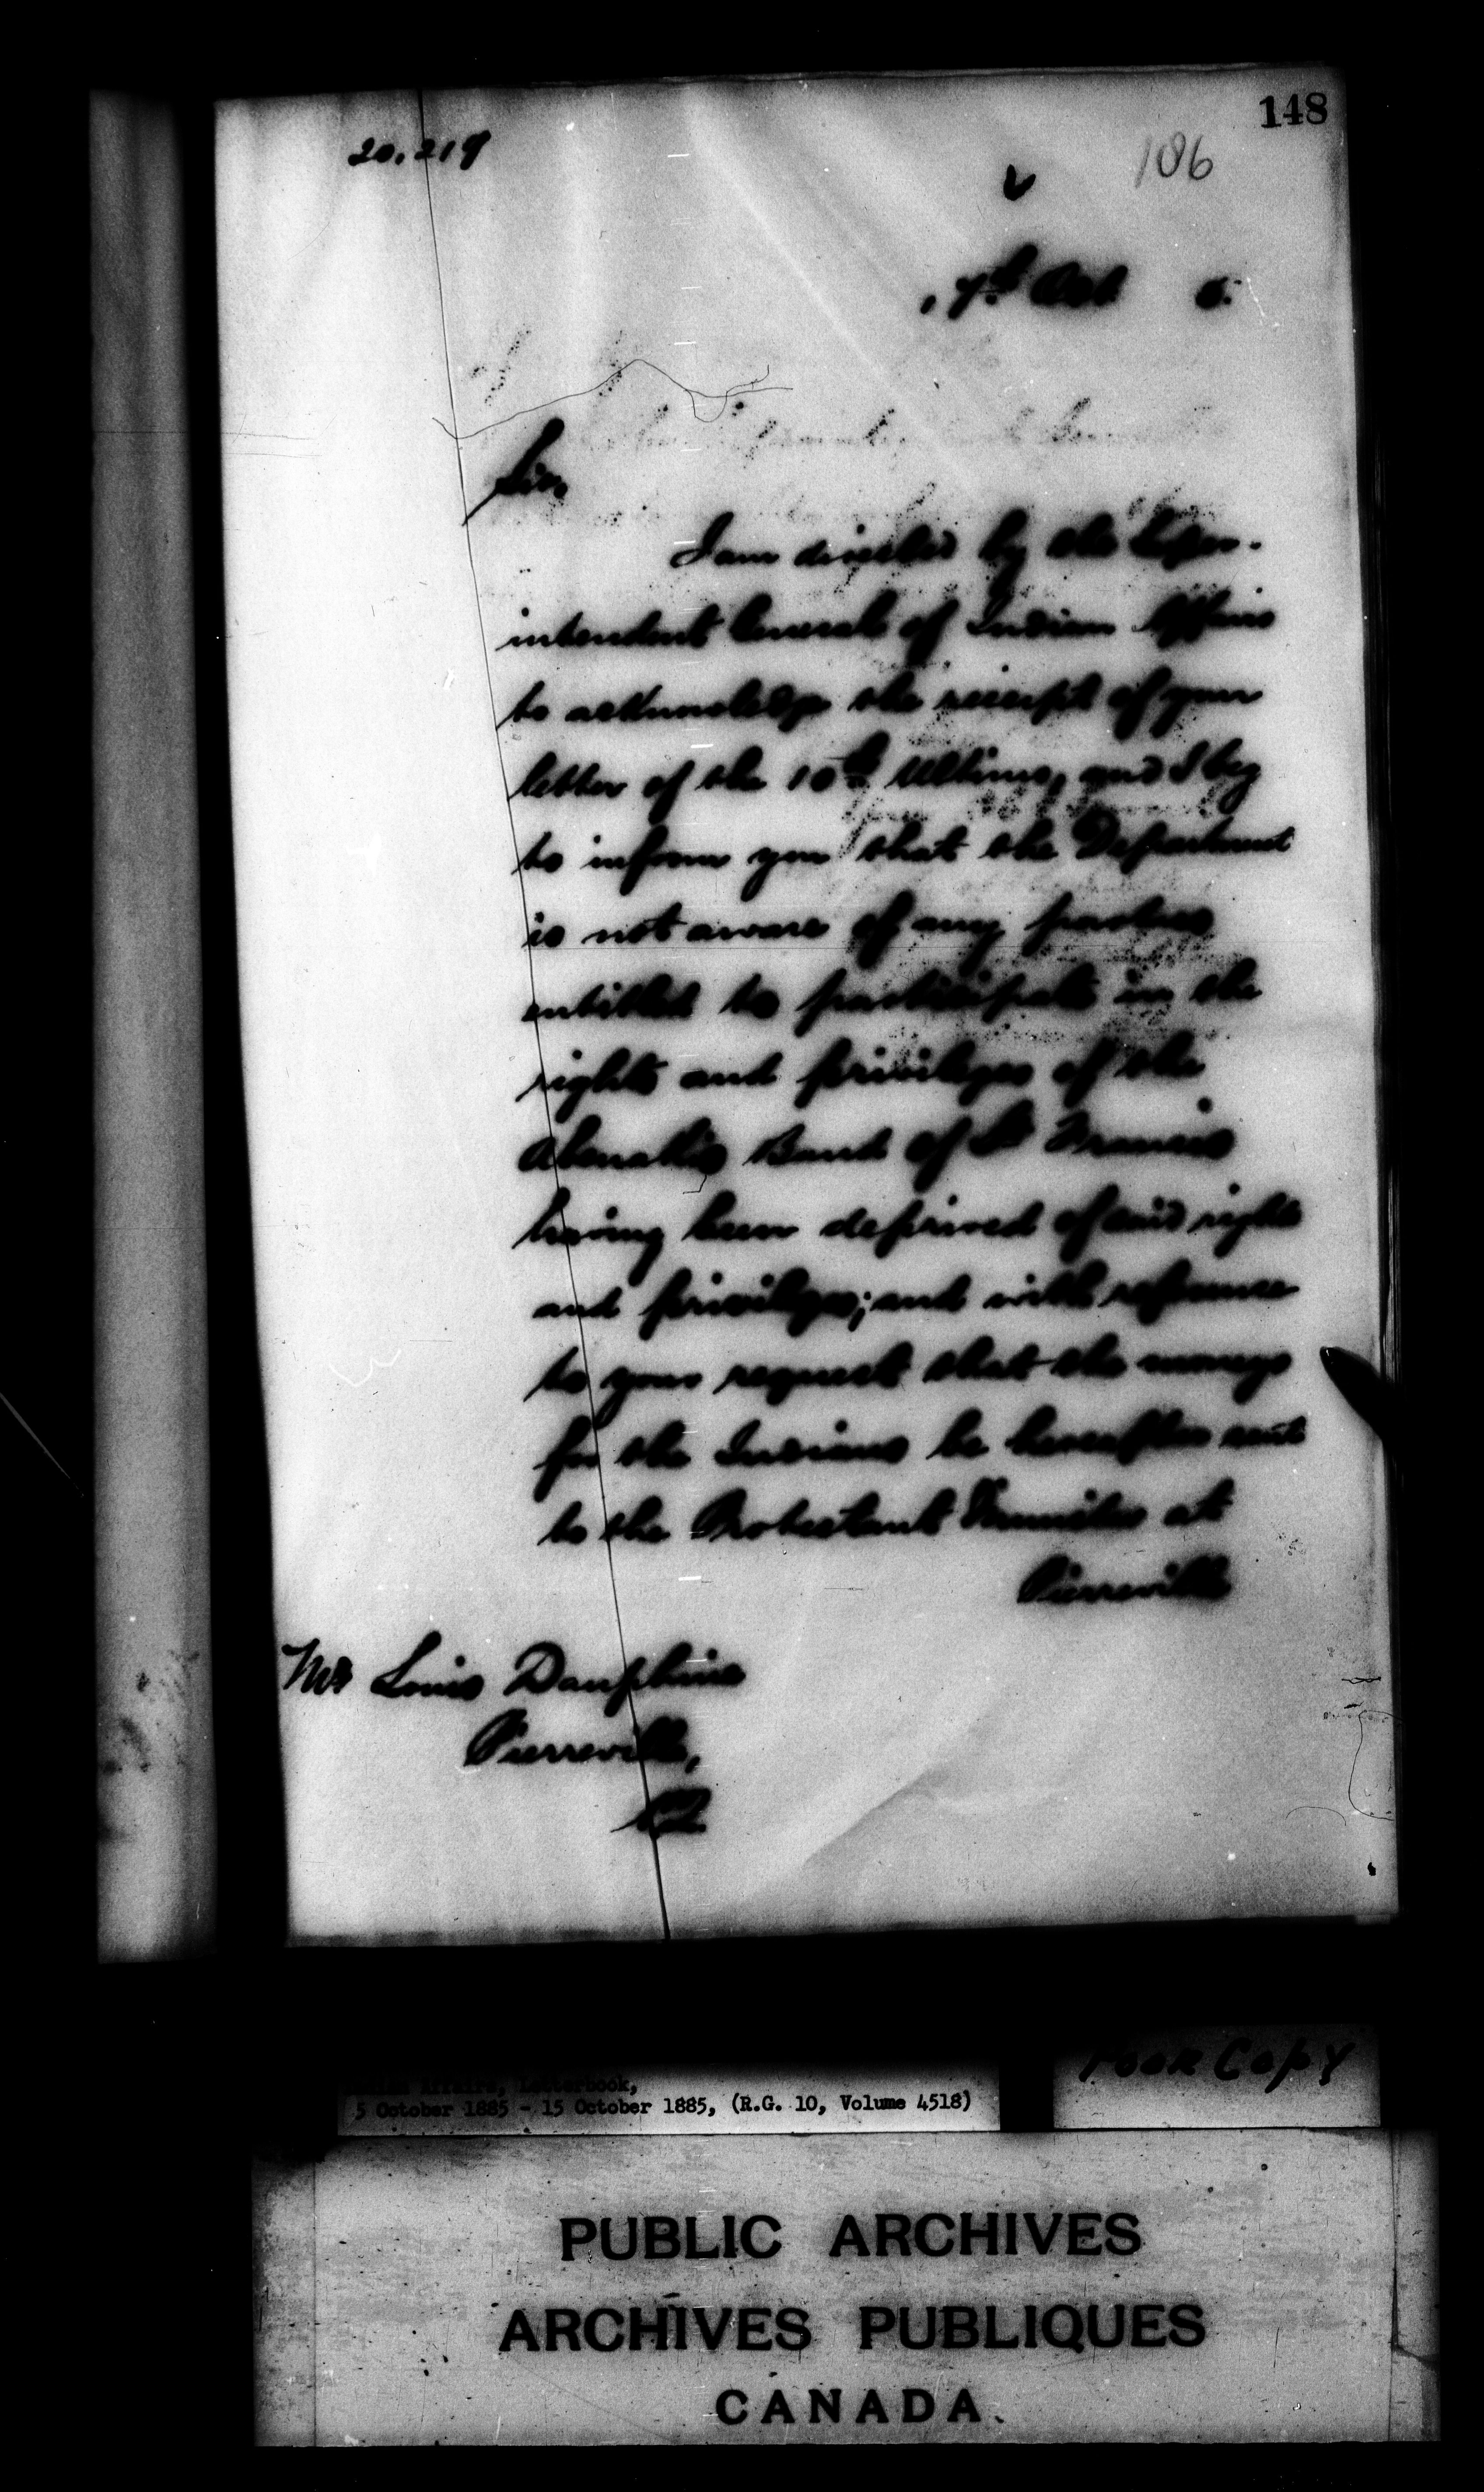 148
20,219
106
7th Oct 5.
Sir,
I am directed by the Super-
intendent General of Indian Affairs
to acknowledge the receipt of your
letter of the 10th Ultimo, and I beg
to inform you that the Department
is not aware of any parties
entitled to participate in the
rights and privileges of the
Abenakis Band of St Francis
having been deprived of said rights
and privileges; and with reference
to your request that the moneys
for the Indians be hereafter sent
to the Protestant Minister at
Pierreville
Mr Louis Dauphine
Pierreville,
P.Q.
Affairs, Letterbook,
5 October 1885 - 15 October 1885, (R.G. 10, Volume 4518)
Poor Copy
PUBLIC ARCHIVES
ARCHIVES PUBLIQUES
CANADA